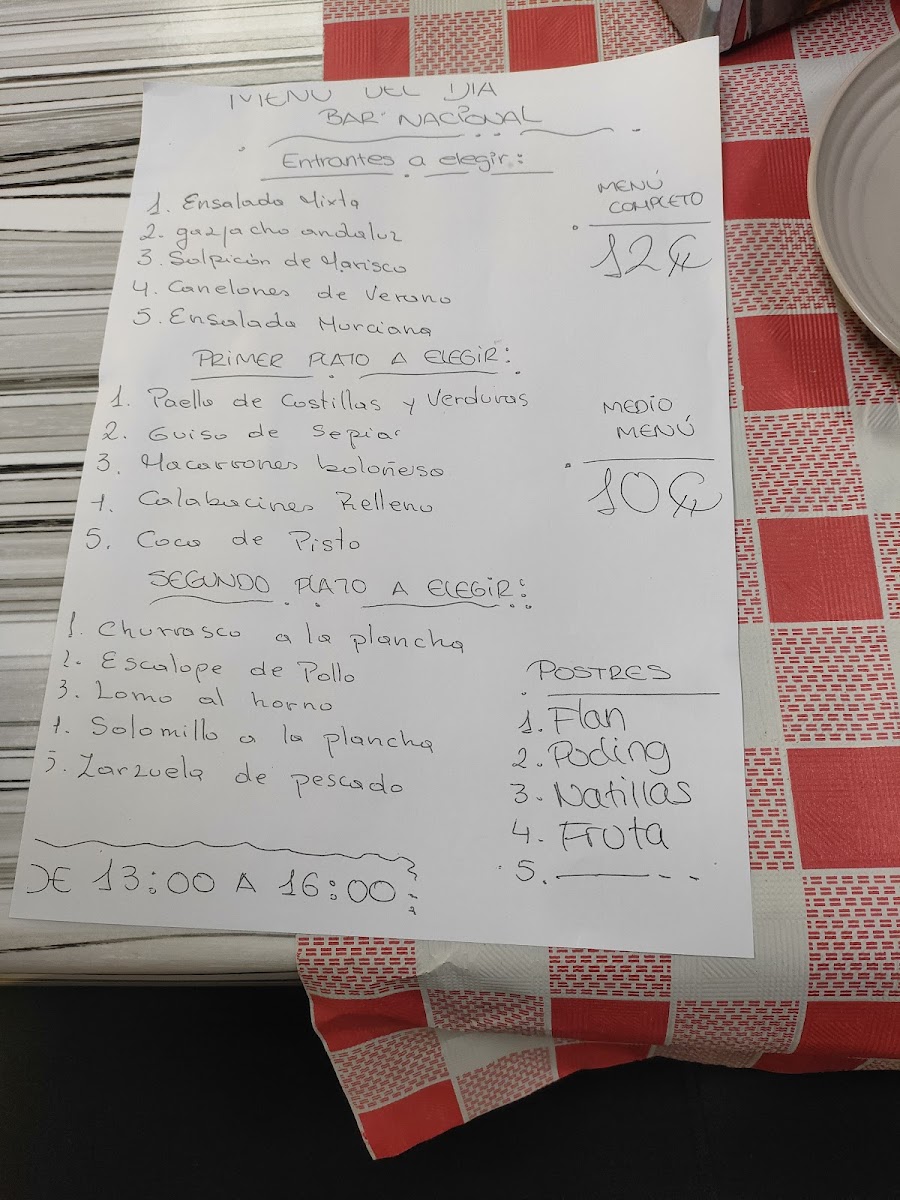 MENU DEL DIA
BAR NACIONAL
Entrantes a elegir:
1. Ensalada Mixta
2. gazpacho andaluz
3. Salpicón de Marisco
4. Canelones de Verano
5. Ensalada Murciana
MENÚ
COMPLETO
12€
PRIMER PLATO A ELEGIR:
1. Paella de Costillas y Verduras
2. Guiso de Sepia
3. Macarrones boloñesa
4. Calabacines Relleno
5. Coca de Pisto
MEDIO
MENÚ
10€
SEGUNDO PLATO A ELEGIR:
1. Churrasco a la plancha
2. Escalope de Pollo
3. Lomo al horno
4. Solomillo a la plancha
5. Zarzuela de pescado
POSTRES
1. Flan
2. Poding
3. Natillas
4. Fruta
5.
DE 13:00 A 16:00